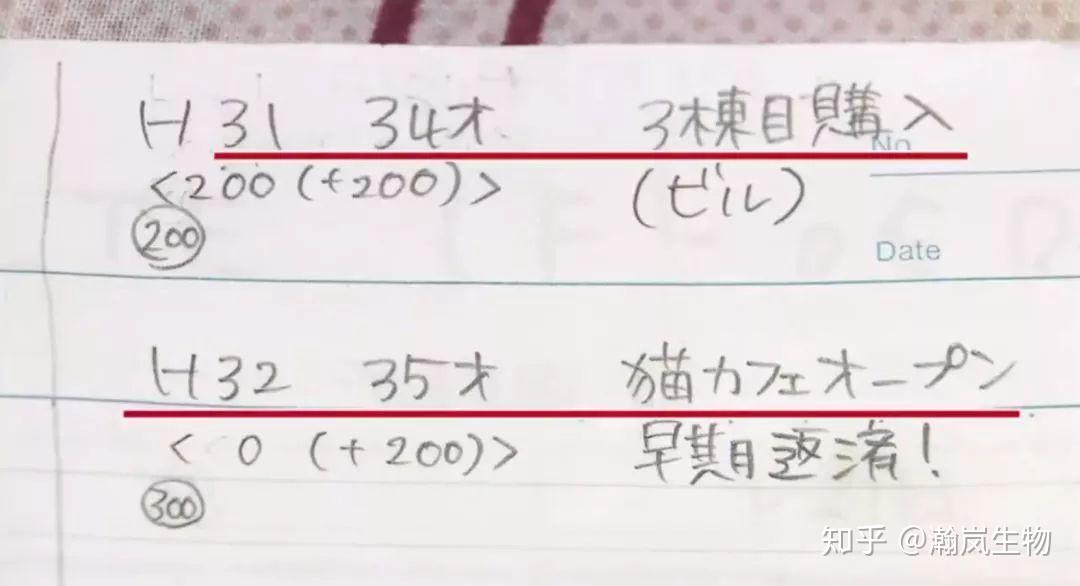 H 31 34才 3棟目購入
No
<200 (+200)> (ビル)
200
Date
H32 35才 猫カフェオープン
< 0 (+200)> 早期返済!
300
知乎 @瀚岚生物